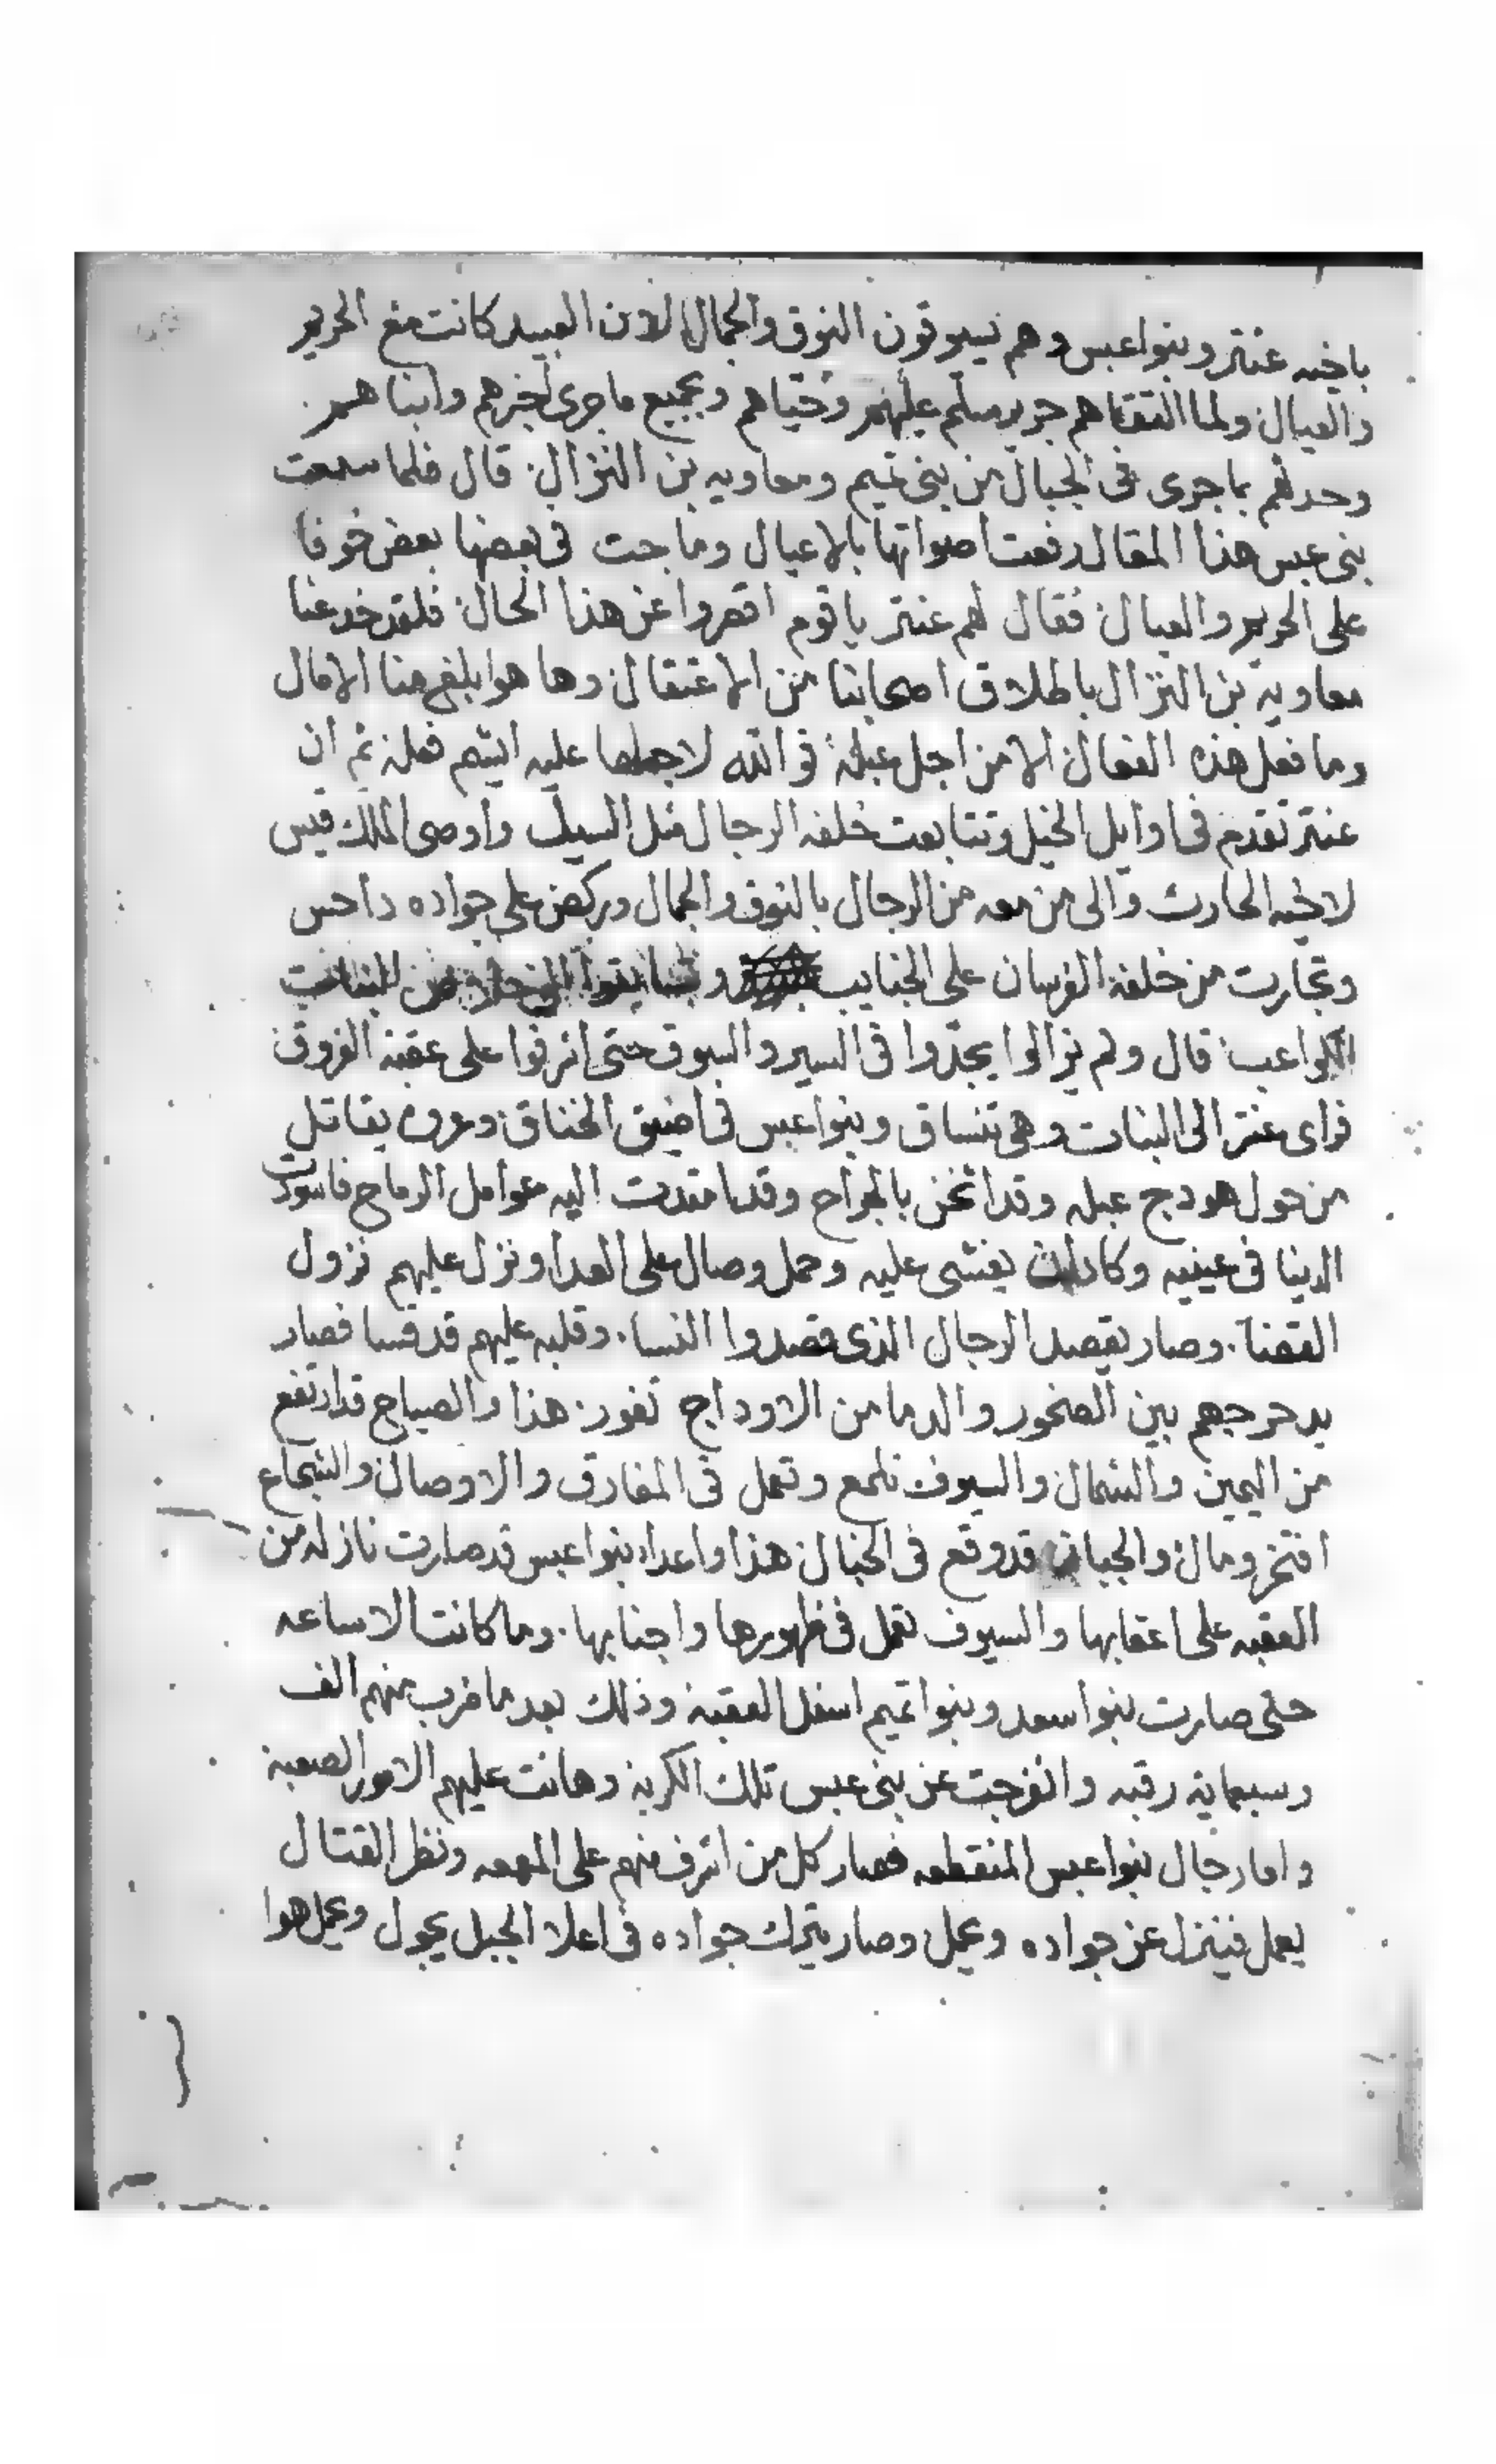 باخيه عنتر وبنوا عبس وهم يسوقون النوق والجمال لان العبيد كانت مع الحريم
والعيال ولما التقاهم جرير سلم عليهم وحياهم وبجميع ما جرى اخبرهم وانباهم
وحدثهم بما جرى فى الجبال من بنى تميم ومعاويه بن النزال قال فلما سمعت
بنى عبس هذا المقال رفعت اصواتها بالاعيال وماجت فى بعضها بعض خوفا
على الحريم والعيال فقال لهم عنتر يا قوم اقصروا عن هذا الحال فلقد خدعنا
معاوية بن النزال باطلاق اصحابنا من الاعتقال وها هوا بلغ منا الامال
وما فعل هذه الفعال الا من اجل عبلة فو الله لاجعلها عليه ايشم فعله ثم ان
عنتر تقدم فى اوايل الخيل وتتابعت خلفه الرجال مثل السيل واوصى الملك قيس
لاخيه الحارث والى من معه من الرجال بالنوق والجمال وركض على جواده داحس
وتجارت من خلفه الفرسان على الجنايب وتسابقوا الى خلاص البنات
الكواعب قال ولم يزالوا يجدّوا فى السير والسوق حتى اشرفوا على عقبة الفروق
فراى عنتر الى البنات وهى تنساق وبنوا عبس فى اضيق الخناق وعروه يقاتل
من حول هودج عبله وقد اثخن بالجراح وقد امتدت اليه عوامل الرماح فاسودت
الدنيا فى عينيه وكاد ان يغشى عليه وحمل وصال على العدا ونزل عليهم نزول
القضآ وصار يقصد الرجال الذى قصدوا النسا وقلبه عليهم قد قسا فصار
يدحرجهم بين الصخور والدما من الاوداج تفور هذا والصياح قد ارتفع
من اليمين والشمال والسيوف تلمع وتعمل فى المفارق والاوصال والشجاع
افتخر ومال والجبان قد وقع فى الخبال هذا واعداء بنوا عبس قد صارت نازله من
العقبه على اعقابها والسيوف تعمل فى ظهورها واجنابها وما كانت الا ساعه
حتى صارت بنوا سعد وبنوا تميم اسفل العقبة وذلك بعد ما ضرب منهم الف
وسبعماية رقبه وانفرجت عن بنى عبس تلك الكربة وهانت عليهم الامور الصعبة
واما رجال بنوا عبس المنقطعه فصار كل من اشرف منهم على المعمعه ونظر القتال
يعمل فينزل عن جواده ويحمل وصار يترك جواده فى اعلا الجبل يجول ويحمل هوا